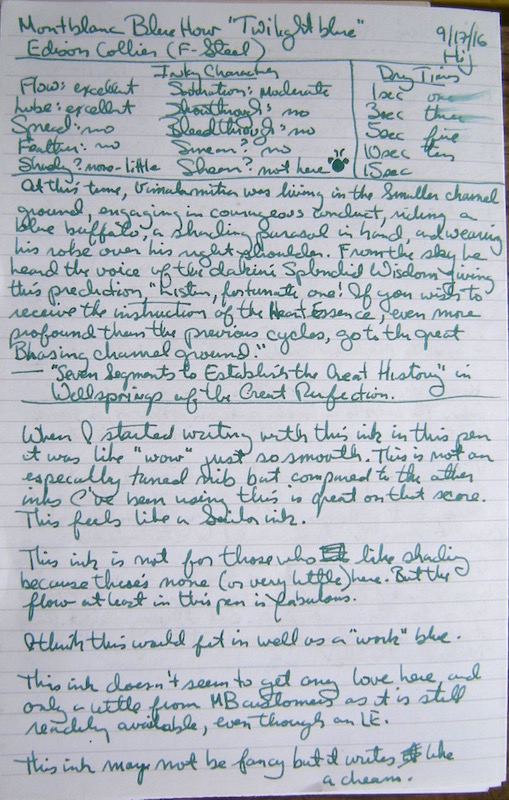 Montblanc Blue Hour "Twilight blue"
9/17/16
Edison Collier (F-Steel)
Inky Characters
Dry Times
Flow: excellent Saturation: Moderate
1sec one
Lube: excellent Showthrough: no
3sec three
Spread: no Bleedthrough: no
5sec five
Feather: no Smear?: no
10sec ten
Shady? none-little Sheen? not here
15sec
At this time, Vimalamitra was living in the Smaller charnel
ground, engaging in courageous conduct, riding a
blue buffalo, a shading parasol in hand, and wearing
his robe over his right shoulder. From the sky he
heard the voice of the dakini Splendid Wisdom giving
this prediction "Listen, fortunate one! If you wish to
receive the instruction of the Heart Essence, even more
profound than the previous cycles, go to the great
Bhasing charnal ground."
— "Seven Segments to Establish the Great History" in
Wellsprings of the Great Perfection.
When I started writing with this ink in this pen
it was like "wow" just so smooth. This is not an
especially tuned nib but compared to the other
inks I've been using this is great on that score.
This feels like a Sailor ink.
This ink is not for those who like shading
because there's none (or very little) here. But the
flow at least in this pen is fabulous.
I think this would fit in well as a "work" blue.
This ink doesn't seem to get any love here, and
only a little from MB customers as it is still
readily available, even though an LE.
This ink may not be fancy but it writes like
a dream.